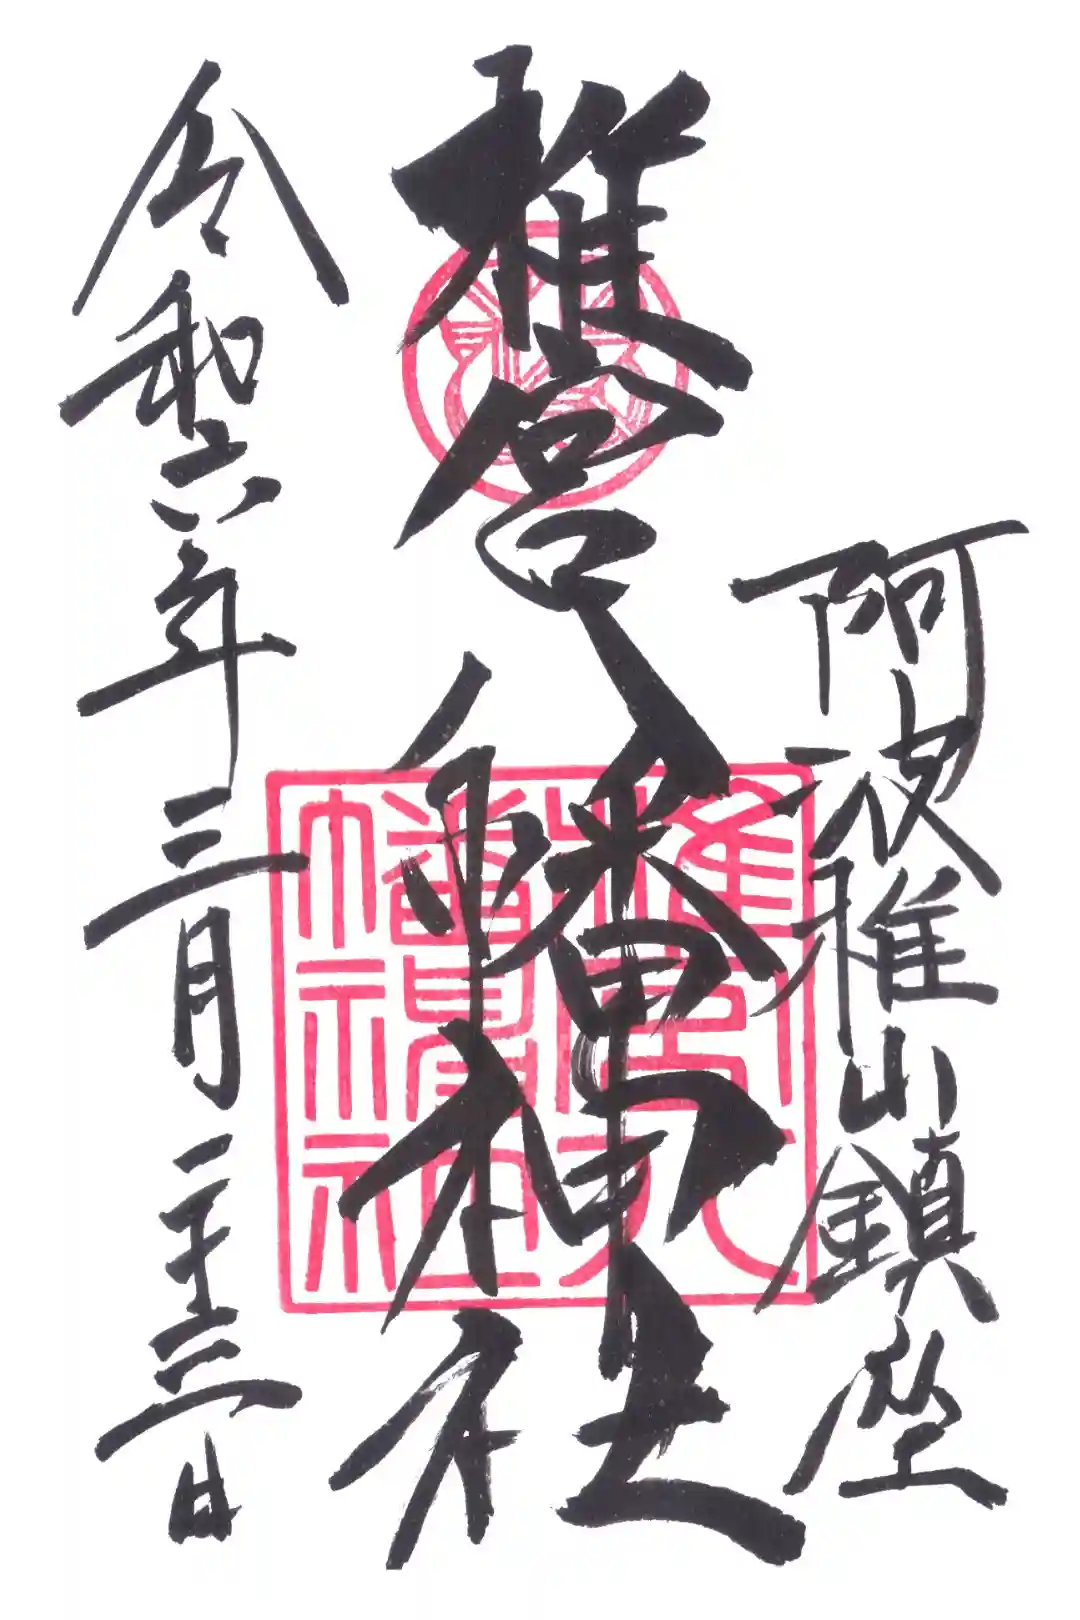 阿波椎山鎮座
椎宮八幡神社
令和六年三月二十三日
椎宮八幡神社